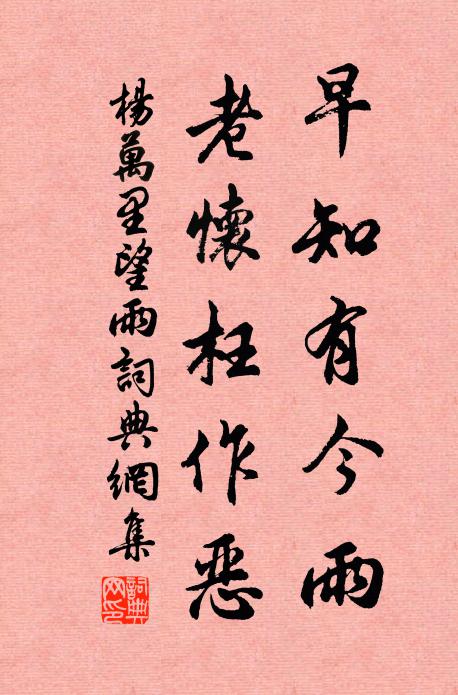 早知有今雨
老懷枉作恶
楊萬里望雨詞典網集
詞典
网印